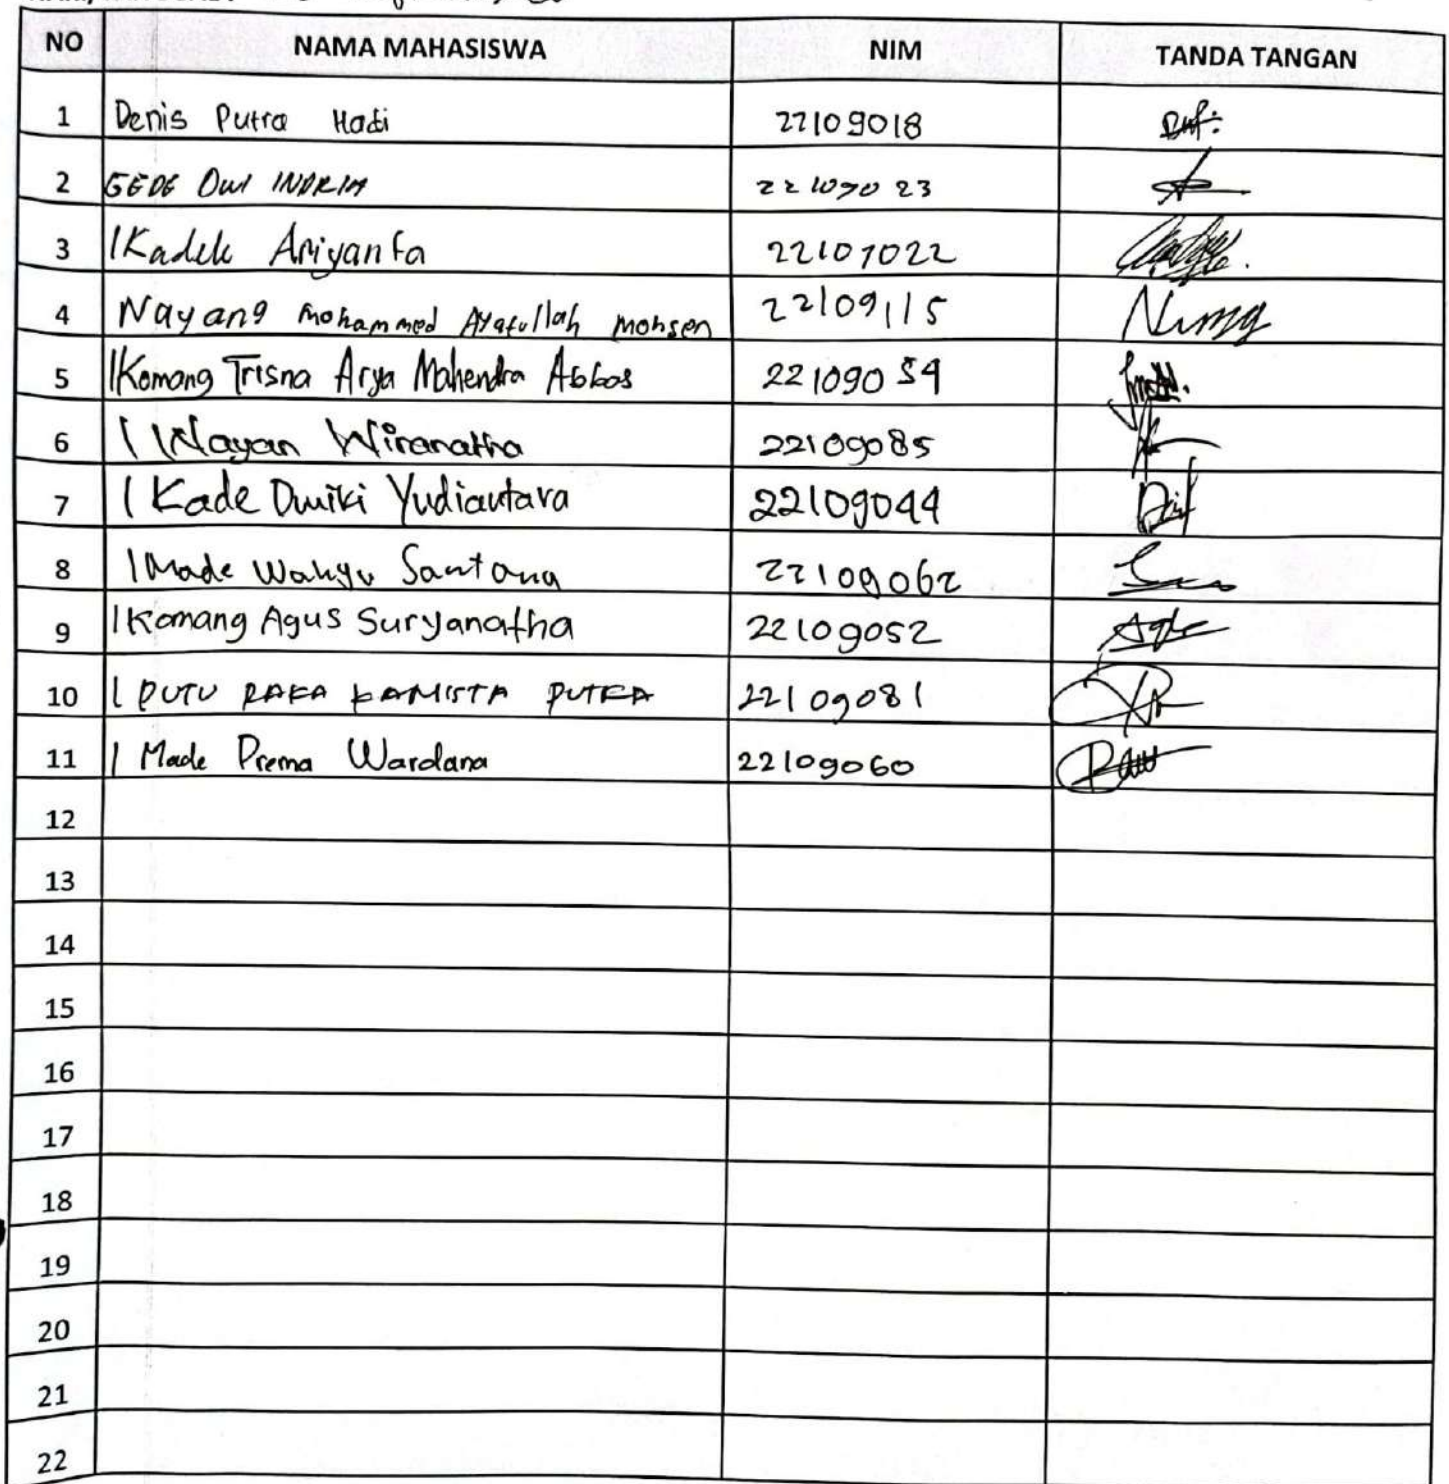 NO NAMA MAHASISWA NIM TANDA TANGAN
1 Denis Putra Hadi 22109018
2 GEDE DWI INDRIA 22109023
3 I Kadek Ariyanta 22109022
4 Nayang Mohammed Ayatullah Mohsen 22109115
5 I Komang Trisna Arya Mahendra Abbas 22109054
6 I Wayan Wiranatha 22109085
7 I Kade Dwiki Yudiantara 22109044
8 I Made Wahyu Santana 22109062
9 I Komang Agus Suryanatha 22109052
10 I PUTU RAKA KAMISTA PUTRA 22109081
11 I Made Prema Wardana 22109060
12
13
14
15
16
17
18
19
20
21
22